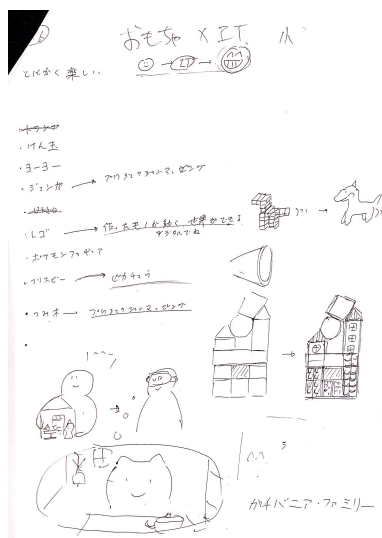 おもちゃ × IT
とにかく楽しい
IT
・トランプ
・けん玉
・ヨーヨー
・ジェンガ → プロジェクションマッピング
・レゴ → 作ったモノが動く、世界ができる
デジタルでね
・ポケモンフィギュア
・フリスビー → ピカチュウ
・つみ木 → プロジェクションマッピング
ガチバニア・ファミリー